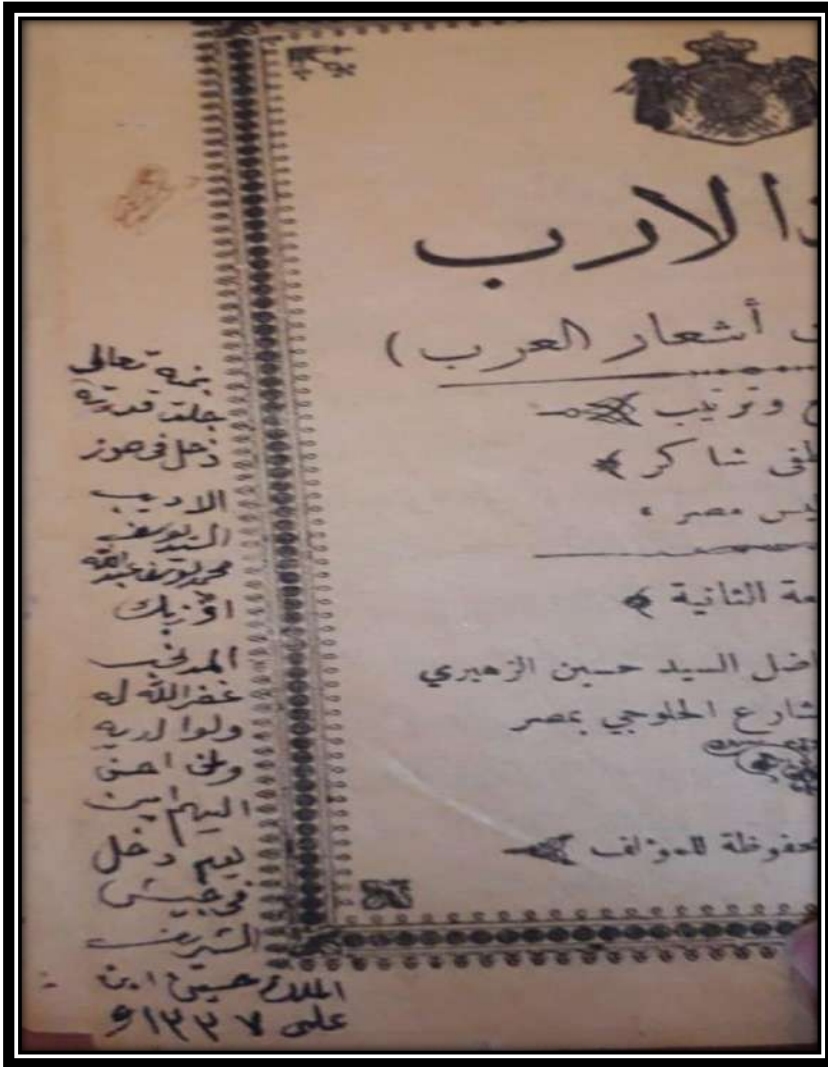 ذا الارب
أشعار العرب )
وترتيب
شاكر
مصر
الثانية
السيد حسين الزهيري
شارع الحلوجي بمصر
محفوظة للمؤلف
بمنه تعالى
جلت قدرته
دخل في حوز
الاديب
السيد يوسف
اوزبك
المدني
غفر الله له
ولوالديه
احسن
اليهم امين
دخل
في جيش
الشريف
الملك حسين ابن
على ١٣٣٧